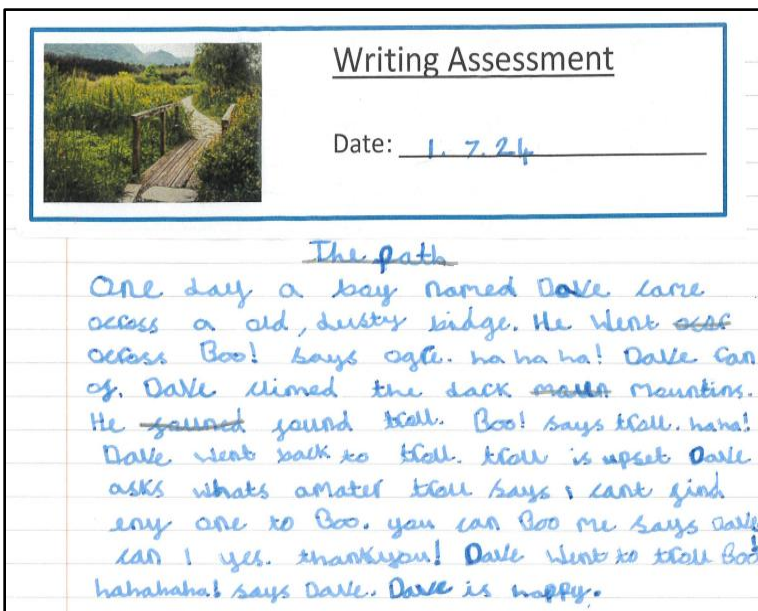 Writing Assessment
Date: 1. 7. 24
The path
One day a boy named Dave came
across a old, dusty bridge. He went
across Boo! says ogre. ha ha ha! Dave ran
of. Dave climed the dack mountins.
He found troll. Boo! says troll. haha!
Dave went back to troll. troll is upset Dave
asks whats amater troll says i cant find
eny one to Boo. you can Boo me says Dave
can I yes. thankyou! Dave went to troll Boo!
hahahaha! says Dave. Dave is happy.